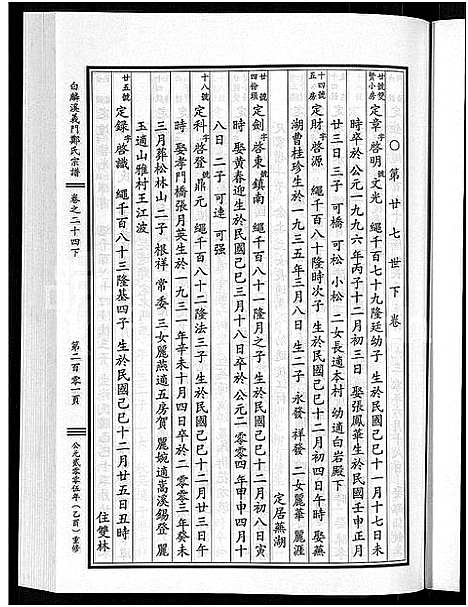 ○第廿七世下卷
廿號雙賢小房 定章字啓明號文光 繩千百七十九隆廷幼子 生於民國己巳十一月十七日未
時卒於公元一九九六年丙子十二月初三日 娶張鳳華生於民國壬申正月
廿三日 三子 可橋 可松 小松 二女長適本村 幼適白岩殿下
十四號五房 定財字啓源 繩千百八十隆時次子 生於民國己巳十二月初四日午時 娶蕪
湖曹桂珍生於一九三五年三月八日 生二子 永發 祥發 二女麗華 麗涯
定居蕪湖
廿號四份頭 定劍字啓東號鎮南 繩千百八十一隆月之子 生於民國己巳十二月初八日寅
時 娶黃春迎生於民國己巳三月十八日卒於公元二零零四年甲申四月十
八日 二子 可達 可强
十八號 定科字啓登號鼎元 繩千百八十二隆法三子 生於民國己巳十二月廿三日午
時 娶孝門橋張月英生於一九三一年辛未十月四日卒於二零零三年癸未
三月葬松林山 二子 根祥 常委 三女麗燕適五房賀 麗婉適嵩溪錫登 麗
玉適山雅村王江波
廿五號 定録字啓識 繩千百八十三隆基四子 生於民國己巳十二月廿五日丑時
住雙林
白麟溪義門鄭氏宗譜
卷之二十四下
第二百零一頁
公元貳零零伍年(乙酉)重修